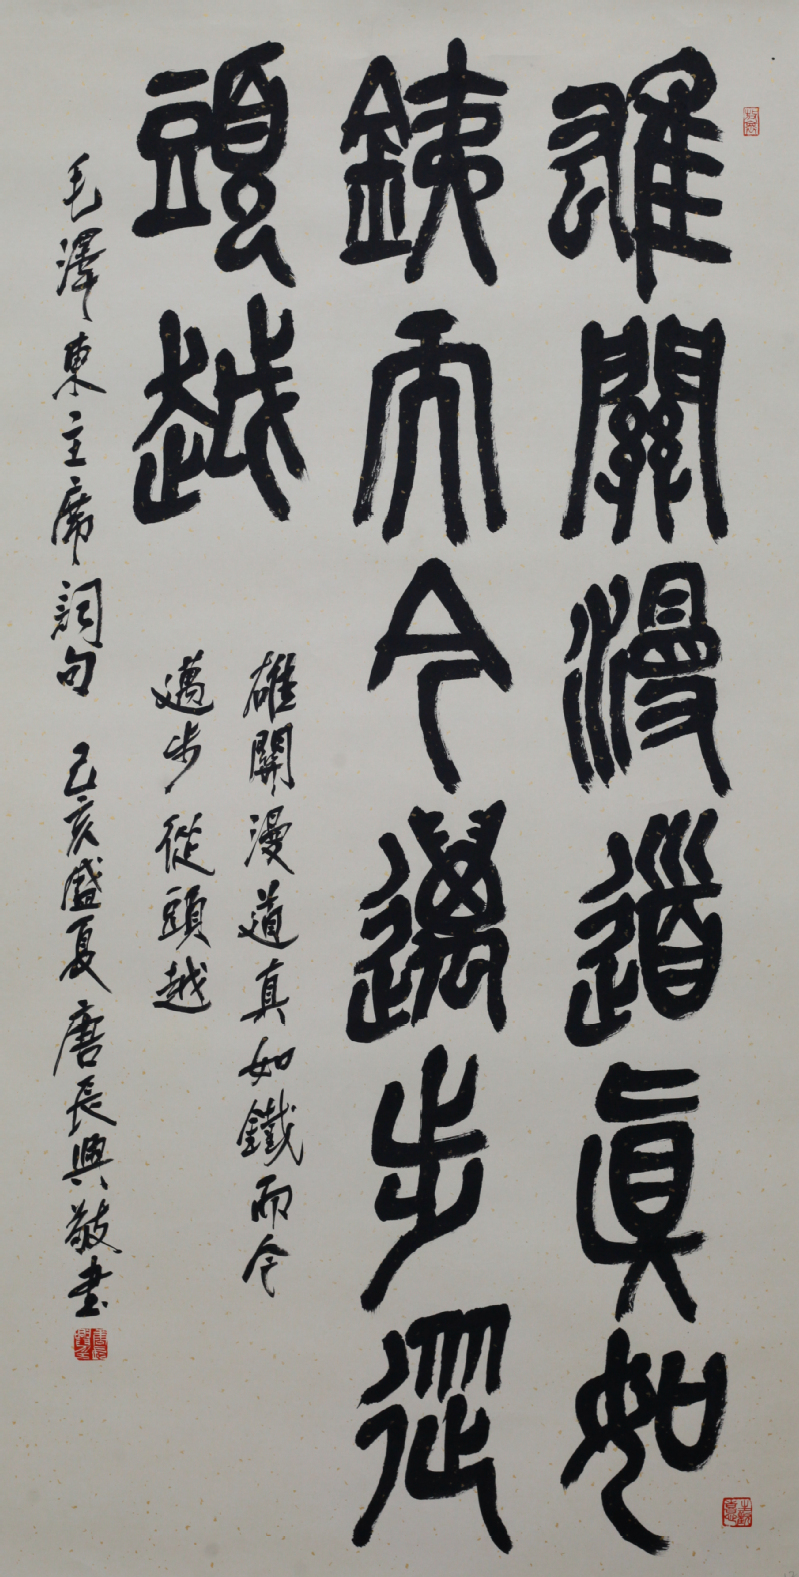 雄關漫道真如
鐵而今邁步從
頭越
雄關漫道真如鐵而今
邁步從頭越
毛澤東主席詞句 己亥盛夏 唐長興敬書